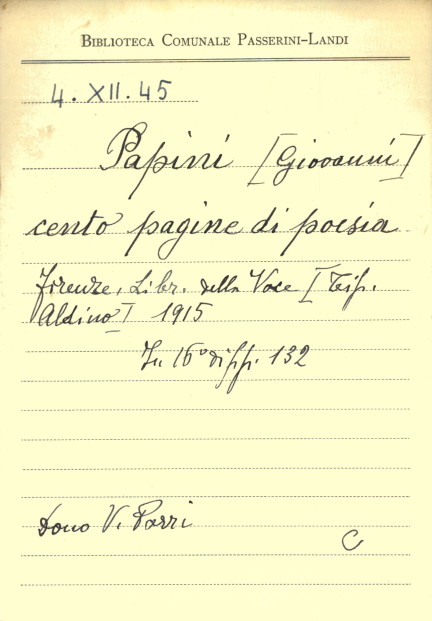 BIBLIOTECA COMUNALE PASSERINI-LANDI
4. XII. 45
Papini [Giovanni]
cento pagine di poesia
Firenze, Libr. della Voce [Tip.
Aldino] 1915
In 16° di pp. 132
Dono V. Parri
C